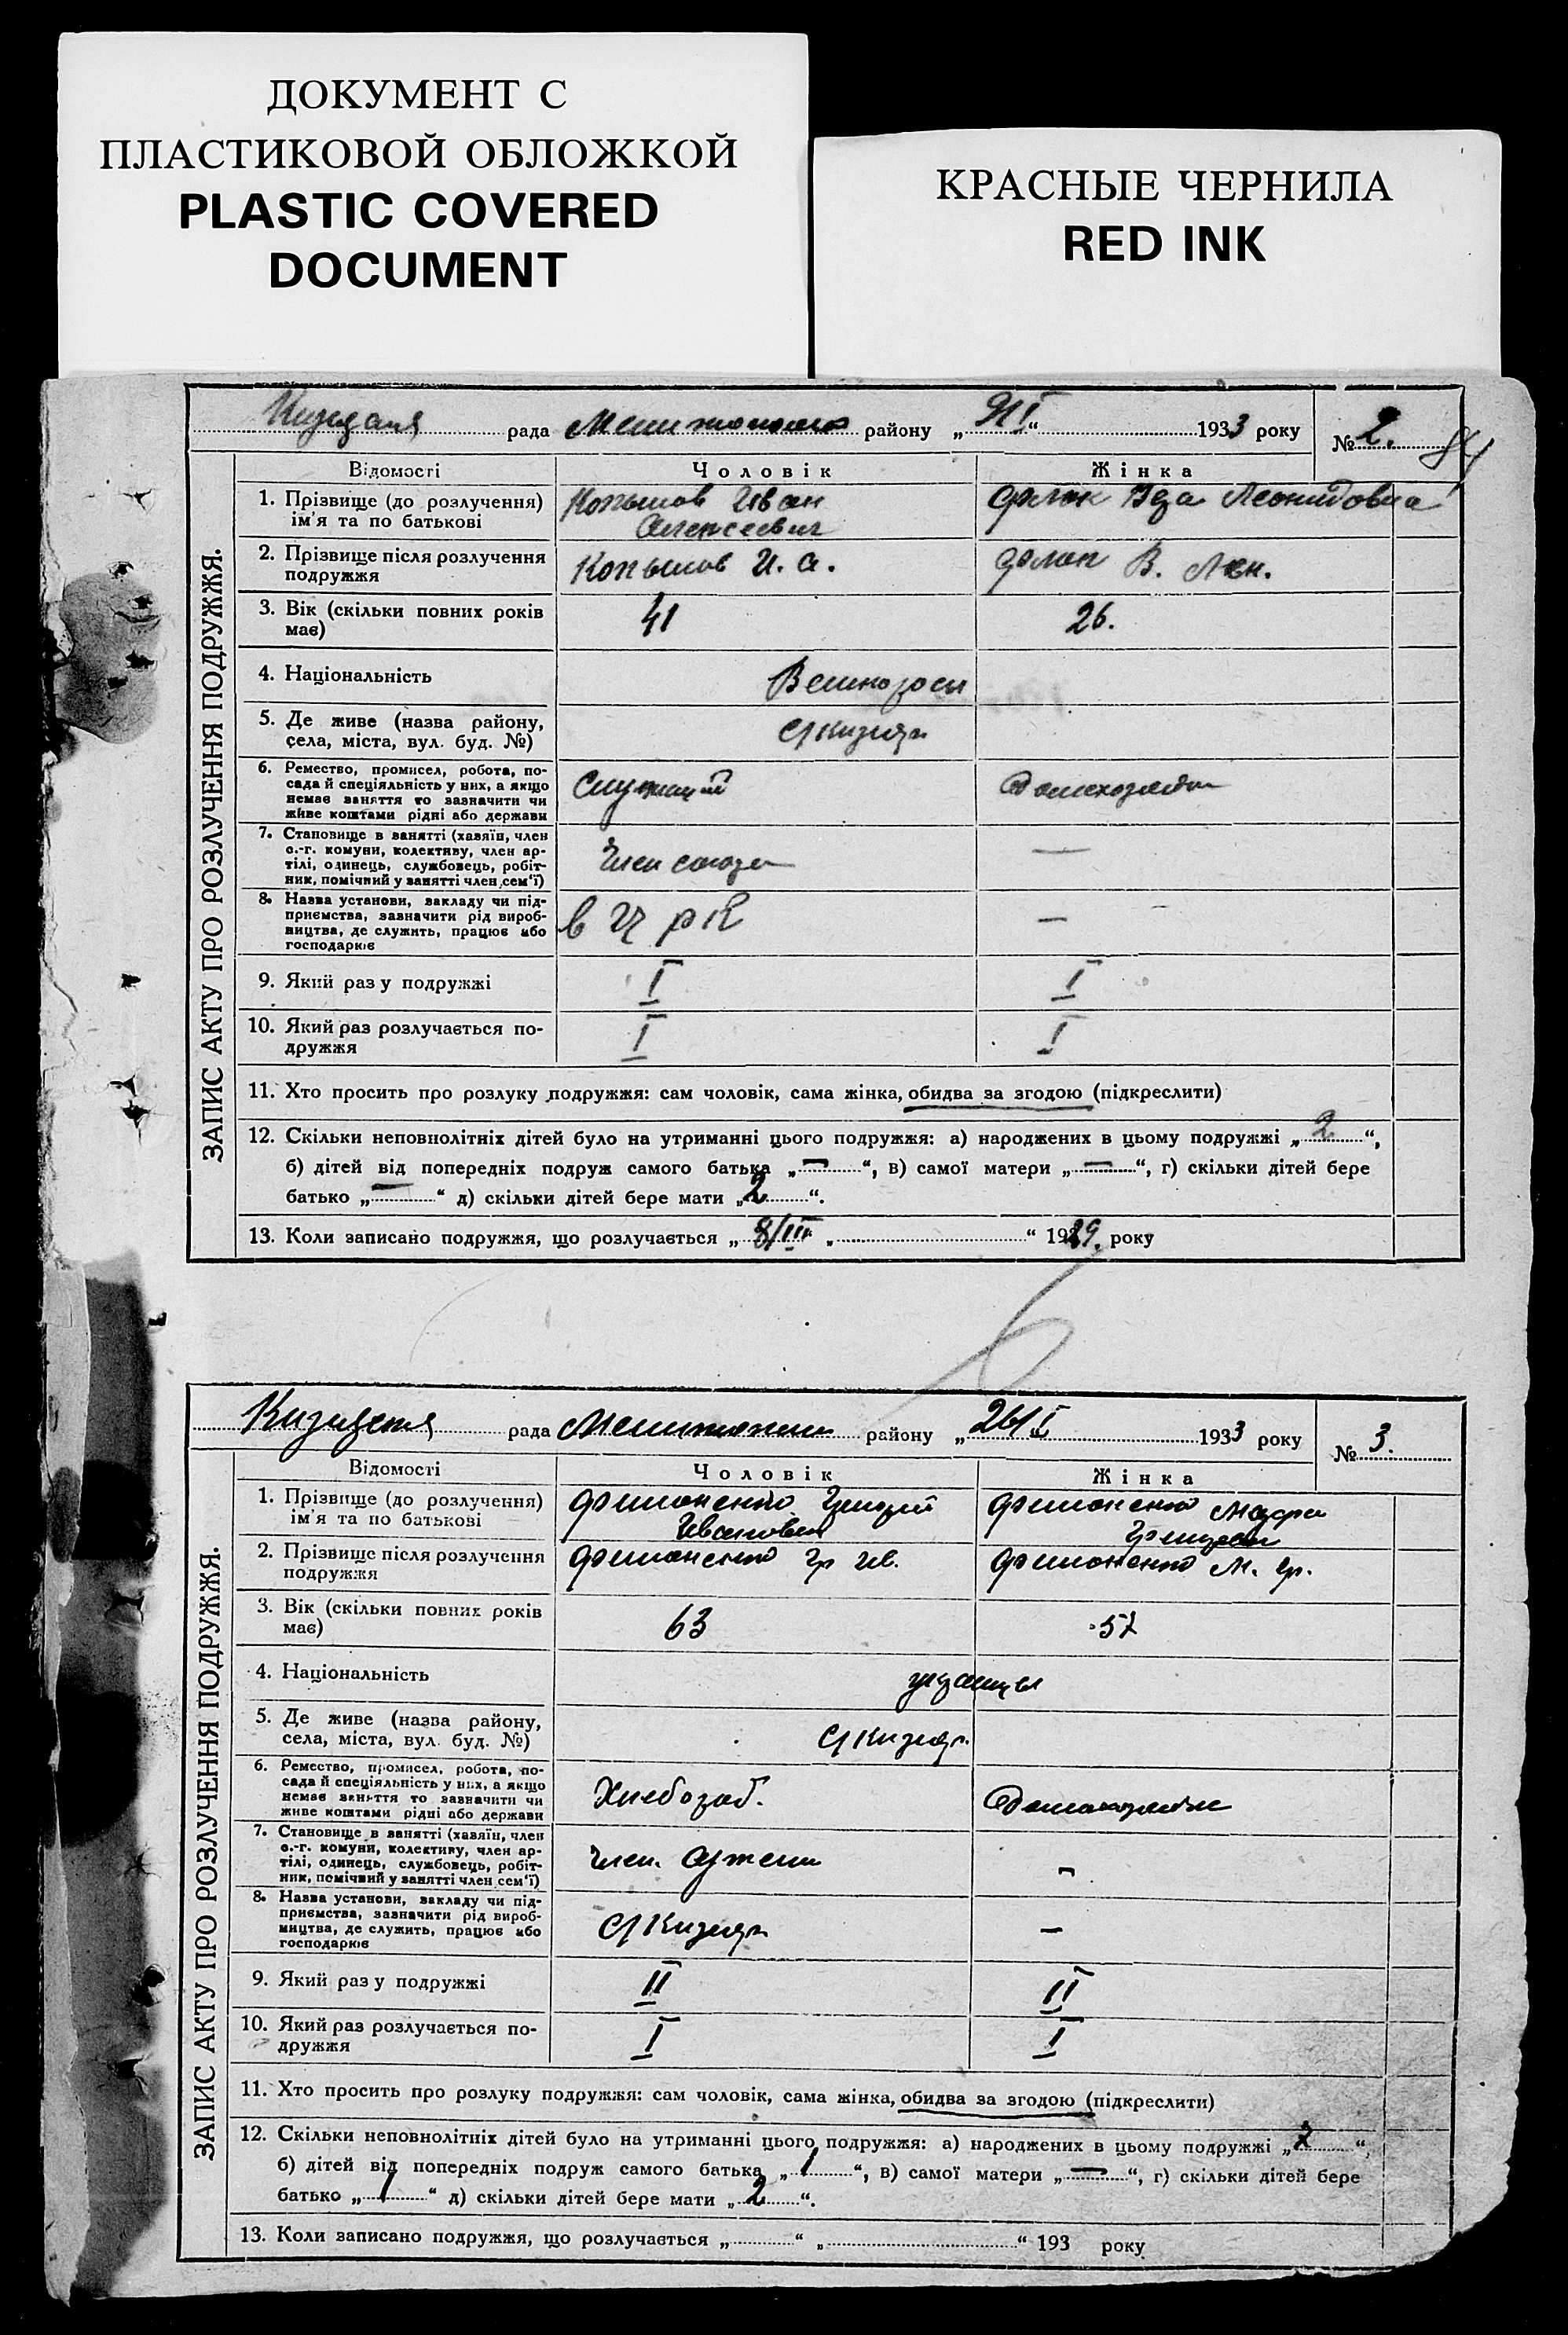 ДОКУМЕНТ С
ПЛАСТИКОВОЙ ОБЛОЖКОЙ
PLASTIC COVERED
DOCUMENT
КРАСНЫЕ ЧЕРНИЛА
RED INK
рада району „ “ 1933 року
№ 2. 84
ЗАПИС АКТУ ПРО РОЗЛУЧЕННЯ ПОДРУЖЖЯ.
Відомості Чоловік Жінка
1. Прізвище (до розлучення) ім'я та по батькові
Копылов Иван Леонидовна
Алексеевич
2. Прізвище після розлучення подружжя
Копылов И. А. В. Леон.
3. Вік (скільки повних років має)
41 26.
4. Національність
Великороссы
5. Де живе (назва району, села, міста, вул. буд. №)
С/Кизияр
6. Ремество, промисел, робота, по-
сада й спеціяльність у них, а якщо
немає заняття то зазначити чи
живе коштами рідні або держави
Служащий Домохозяйка
7. Становище в занятті (хазяїн, член
с.-г. комуни, колективу, член ар-
тілі, одинець, службовець, робіт-
ник, помічний у занятті член сем'ї)
Член союза —
8. Назва установи, закладу чи під-
приємства, зазначити рід вироб-
ництва, де служить, працює або
господарює
в ЦРК —
9. Який раз у подружжі
I I
10. Який раз розлучається по-
дружжя
I I
11. Хто просить про розлуку подружжя: сам чоловік, сама жінка, обидва за згодою (підкреслити)
12. Скільки неповнолітніх дітей було на утриманні цього подружжя: а) народжених в цьому подружжі „2“,
б) дітей від попередніх подруж самого батька „—“, в) самої матери „—“, г) скільки дітей бере
батько „—“ д) скільки дітей бере мати „2“.
13. Коли записано подружжя, що розлучається „8/III „ “ 1929. року
рада району „26/I“ 1933 року
№ 3.
ЗАПИС АКТУ ПРО РОЗЛУЧЕННЯ ПОДРУЖЖЯ.
Відомості Чоловік Жінка
1. Прізвище (до розлучення) ім'я та по батькові
Филоненко Григорий Филоненко
Иванович
2. Прізвище після розлучення подружжя
Филоненко Гр Ив. Филоненко М. Гр.
3. Вік (скільки повних років має)
63 57
4. Національність
украинцы
5. Де живе (назва району, села, міста, вул. буд. №)
С/Кизияр.
6. Ремество, промисел, робота, по-
сада й спеціяльність у них, а якщо
немає заняття то зазначити чи
живе коштами рідні або держави
Хлебороб. Домохозяйка
7. Становище в занятті (хазяїн, член
с.-г. комуни, колективу, член ар-
тілі, одинець, службовець, робіт-
ник, помічний у занятті член сем'ї)
Член. Артели —
8. Назва установи, закладу чи під-
приємства, зазначити рід вироб-
ництва, де служить, працює або
господарює
С/Кизияр —
9. Який раз у подружжі
II II
10. Який раз розлучається по-
дружжя
I I
11. Хто просить про розлуку подружжя: сам чоловік, сама жінка, обидва за згодою (підкреслити)
12. Скільки неповнолітніх дітей було на утриманні цього подружжя: а) народжених в цьому подружжі „2“,
б) дітей від попередніх подруж самого батька „1“, в) самої матери „—“, г) скільки дітей бере
батько „1“ д) скільки дітей бере мати „2“.
13. Коли записано подружжя, що розлучається „ “ „ “ 193 року